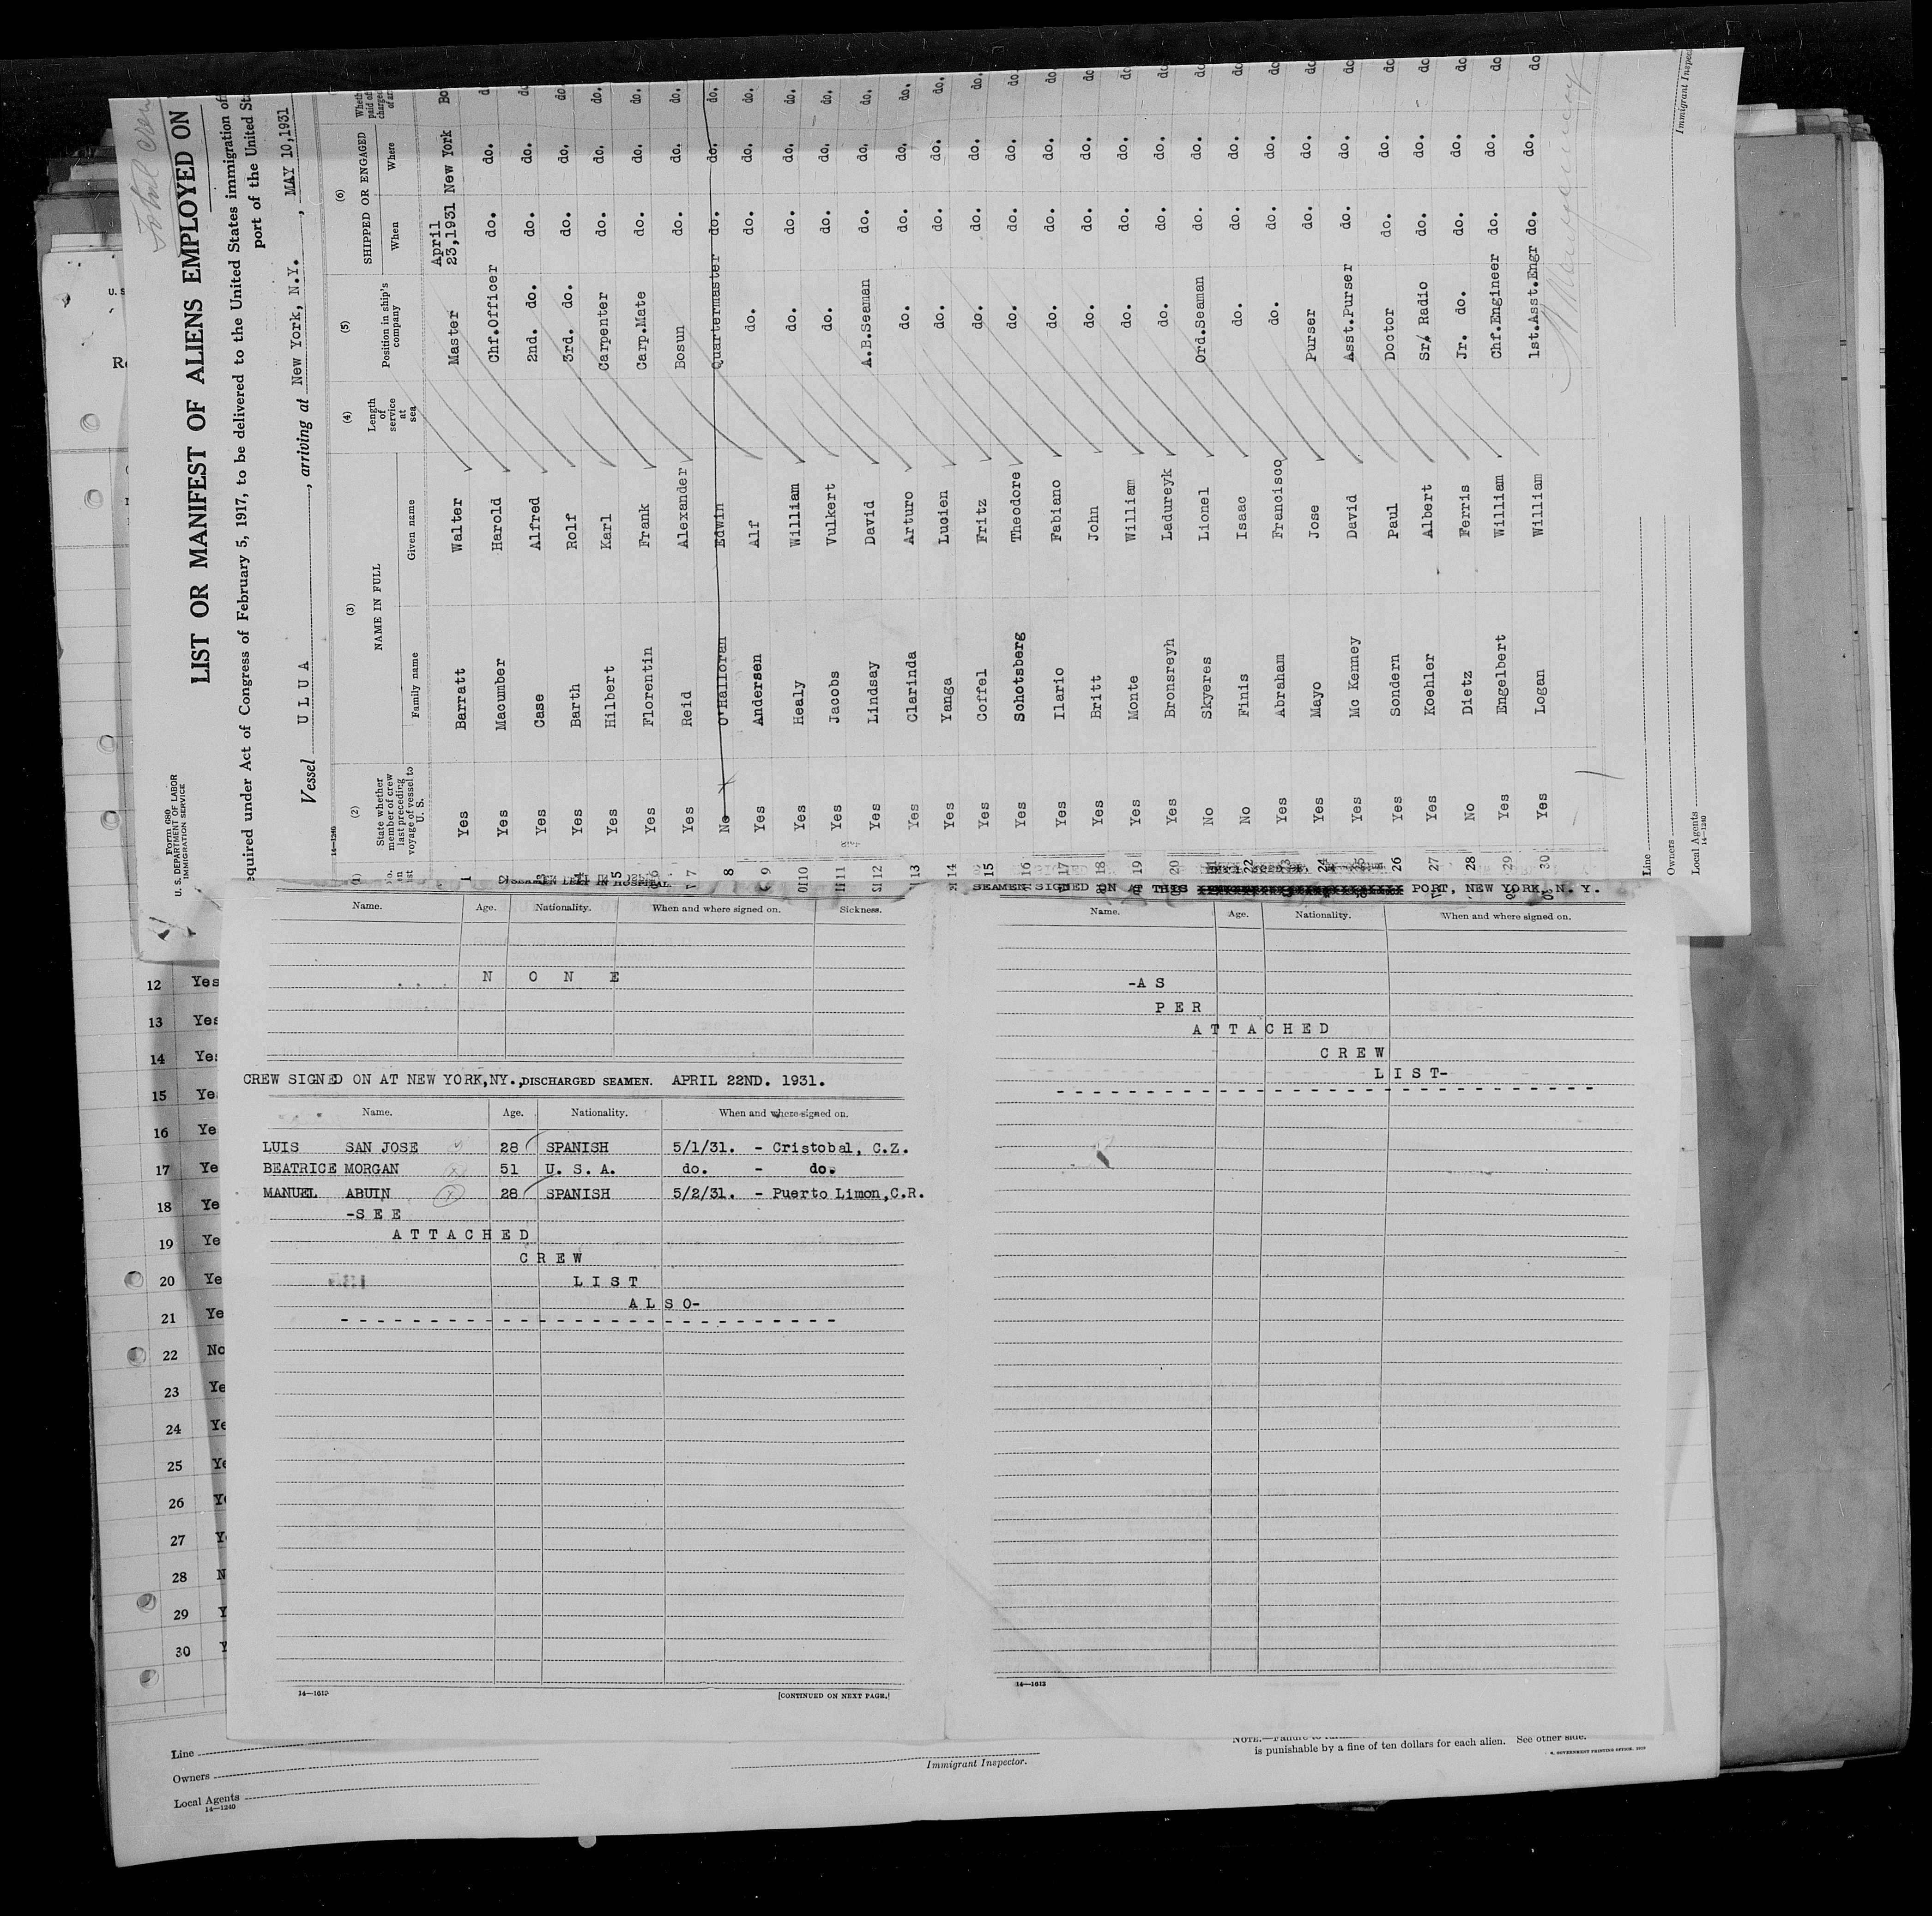 Total crew
Form 680
U. S. DEPARTMENT OF LABOR
IMMIGRATION SERVICE
LIST OR MANIFEST OF ALIENS EMPLOYED ON
equired under Act of Congress of February 5, 1917, to be delivered to the United States immigration of
port of the United Sta
Vessel U L U A , arriving at New York, N.Y. , MAY 10,1931
14—1240
(1) (2) (3) (4) (5) (6)
State whether member of crew last preceding voyage of vessel to U. S.
NAME IN FULL
Family name Given name
Length of service at sea
Position in ship's company
SHIPPED OR ENGAGED
When Where
1 Yes Barratt Walter Master April 23,1931 New York Bo
2 Yes Macumber Harold Chf.Officer do. do. do
3 Yes Case Alfred 2nd. do. do. do. do
4 Yes Barth Rolf 3rd. do. do. do. do
5 Yes Hilbert Karl Carpenter do. do. do.
6 Yes Florentin Frank Carp.Mate do. do. do.
7 Yes Reid Alexander Bosun do. do. do.
8 No O'Halloran Edwin Quartermaster do. do. do.
9 Yes Andersen Alf do. do. do. do.
10 Yes Healy William do. do. do. do.
11 Yes Jacobs Vulkert do. do. do. do.
12 Yes Lindsay David A.B.Seaman do. do. do.
13 Yes Clarinda Arturo do. do. do. do.
14 Yes Yanga Lucien do. do. do. do.
15 Yes Coffel Fritz do. do. do. do.
16 Yes Schotsberg Theodore do. do. do. do
17 Yes Ilario Fabiano do. do. do. do
18 Yes Britt John do. do. do. do
19 Yes Monte William do. do. do. do
20 Yes Bronsreyh Ladureyk do. do. do. do
21 No Skyeres Lionel Ord.Seaman do. do. do
22 No Finis Isaac do. do. do. do
23 Yes Abraham Francisco do. do. do. do
24 Yes Mayo Jose Purser do. do. do
25 Yes Mc Kenney David Asst.Purser do. do. do
26 Yes Sondern Paul Doctor do. do. do
27 Yes Koehler Albert Sr/ Radio do. do. do
28 No Dietz Ferris Jr. do. do. do. do
29 Yes Engelbert William Chf.Engineer do. do. do
30 Yes Logan William 1st.Asst.Engr do. do. do
Line
Owners
Local Agents
14—1240
Immigrant Inspec
SEAMEN LEFT IN HOSPITAL
Name. Age. Nationality. When and where signed on. Sickness.
N O N E
CREW SIGNED ON AT NEW YORK,NY.,DISCHARGED SEAMEN. APRIL 22ND. 1931.
Name. Age. Nationality. When and where signed on.
LUIS SAN JOSE 28 SPANISH 5/1/31. - Cristobal, C.Z.
BEATRICE MORGAN 51 U. S. A. do. - do.
MANUEL ABUIN 28 SPANISH 5/2/31. - Puerto Limon,C.R.
-S E E
A T T A C H E D
C R E W
L I S T
A L S O-
14—1613
[CONTINUED ON NEXT PAGE.]
SEAMEN SIGNED ON AT THIS PORT, NEW YORK, N.Y.
Name. Age. Nationality. When and where signed on.
-A S
P E R
A T T A C H E D
C R E W
L I S T-
14—1613
U. S
R
12 Yes
13 Yes
14 Yes
15 Ye
16 Ye
17 Ye
18 Ye
19 Ye
20 Ye
21 Ye
22 No
23 Ye
24 Ye
25 Ye
26 Y
27 Y
28 N
29 Y
30 Y
Line
Owners
Local Agents
14—1240
Immigrant Inspector.
NOTE.—Failure to
is punishable by a fine of ten dollars for each alien. See other side.
GOVERNMENT PRINTING OFFICE